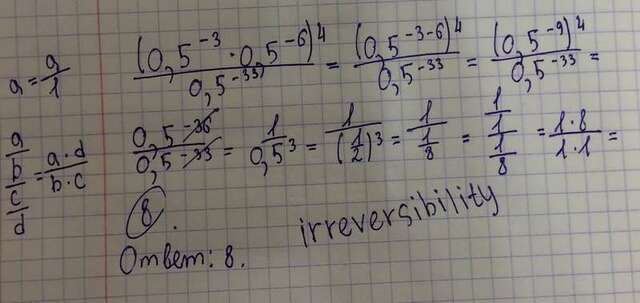 a = a/1
(0,5⁻³ · 0,5⁻⁶)⁴ / 0,5⁻³³ = (0,5⁻³⁻⁶)⁴ / 0,5⁻³³ = (0,5⁻⁹)⁴ / 0,5⁻³³ =
(a/b) / (c/d) = a·d / b·c
0,5⁻³⁶ / 0,5⁻³³ = 1 / 0,5³ = 1 / (1/2)³ = 1 / (1/8) = (1/1) / (1/8) = 1·8 / 1·1 =
8.
irreversibility
Ответ: 8.